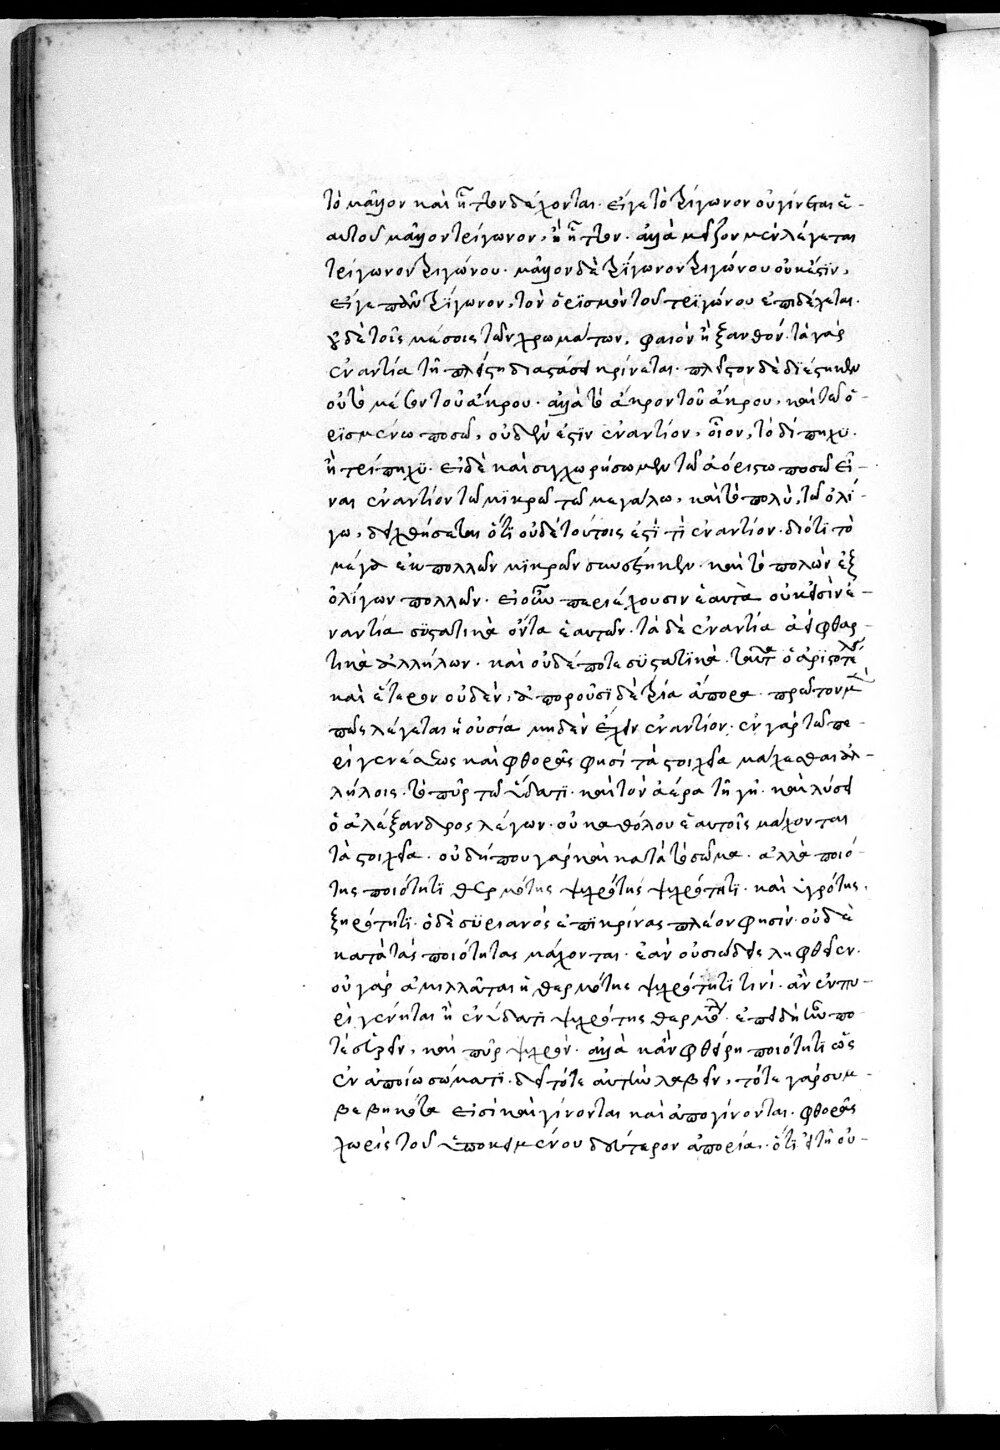 τὸ μᾶλλον καὶ ἧττον δέχονται. εἴγε τὸ τρίγωνον οὐ γίνεται ἑ-
αυτοῦ μᾶλλον τρίγωνον, ἢ ἧττον. ἀλλὰ μεῖζον μὲν λέγεται
τρίγωνον τριγώνου. μᾶλλον δὲ τρίγωνον τριγώνου οὐκ ἔστιν,
εἴγε πᾶν τρίγωνον, τὸν ὁρισμὸν τοῦ τριγώνου ἐπιδέχεται.
οὐδὲ τοῖς μέσοις τῶν χρωμάτων, φαιὸν ἢ ξανθόν. τὰ γὰρ
ἐναντία τῇ πλείστῃ διαστάσει κρίνεται. πλεῖστον δὲ διέστηκεν
οὐ τὸ μέσον τοῦ ἄκρου. ἀλλὰ τὸ ἄκρον τοῦ ἄκρου, καὶ τῷ ὁ-
ρισμένῳ ποσῷ, οὐδέν ἐστιν ἐναντίον, οἷον, τὸ δίπηχυ.
ἢ τρίπηχυ. εἰ δὲ καὶ συγχωρήσωμεν τῷ ἀορίστῳ ποσῷ εἶ-
ναι ἐναντίον τῷ μικρῷ τῷ μεγάλῳ, καὶ τὸ πολὺ, τῷ ὀλί-
γῳ, δειχθήσεται ὅτι οὐδὲ τούτοις ἐστί τι ἐναντίον. διότι τὸ
μέγα ἐκ πολλῶν μικρῶν συνέστηκεν. καὶ τὸ πολὺν ἐξ
ὀλίγων πολλῶν. εἰ οὖν περιέχουσιν ἑαυτὰ οὐκ εἰσὶν ἐ-
ναντία συστατικὰ ὄντα ἑαυτῶν. τὰ δὲ ἐναντία ἀεὶ φθαρ-
τικὰ ἀλλήλων. καὶ οὐδέποτε συστατικά. ταῦτα ὁ ἀριστοτέλης
καὶ ἕτερον οὐδὲν, ἀποροῦσι δὲ τρία ἄπορα. πρῶτον μὲν
πῶς λέγεται ἡ οὐσία μηδὲν ἔχειν ἐναντίον. ἐν γὰρ τῷ πε-
ρὶ γενέσεως καὶ φθορᾶς φησὶ τὰ στοιχεῖα μάχεσθαι ἀλ-
λήλοις. τὸ πῦρ τῷ ὕδατι. καὶ τὸν ἀέρα τῇ γῇ. καὶ λύσει
ὁ ἀλέξανδρος λέγων. οὐ καθόλου ἑαυτοῖς μάχονται
τὰ στοιχεῖα. οὐ δήπου γὰρ καὶ κατὰ τὸ σῶμα. ἀλλὰ ποιό-
της ποιότητι θερμότης ψυχρότης ψυχρότητι. καὶ ὑγρότης,
ξηρότητι. ὁ δὲ συριανός ἐπικρίνας πλέον φησὶν. οὐδὲ
κατὰ τὰς ποιότητας μάχονται. ἐὰν οὐσιώδεις ληφθεῖεν.
οὐ γὰρ ἁμιλλᾶται ἡ θερμότης ψυχρότητι τινὶ. ἂν ἐν πυ-
ρὶ γένηται ἢ ἐν ὕδατι ψυχρότης θερμοῦ. ἐπειδὴ οὖν πο-
τέστερεῖν, καὶ πῦρ ψυχρόν. ἀλλὰ κἂν φθείρῃ ποιότητι ὡς
ἐν ἀποίῳ σώματι. δεῖ τότε αὐτὴν λαβεῖν, τότε γὰρ συμ-
βεβηκότα εἰσὶ καὶ γίνονται καὶ ἀπογίνονται. φθορᾶς
χωρὶς τοῦ ὑποκειμένου δεύτερον ἀπορία. ὅτι εἰ τῇ οὐ-